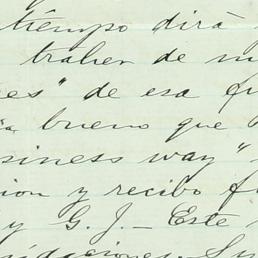 tiempo dirá
traher de m
es" de esa fu
bueno que
siness way"
ion y recibo f
y G. J. — Este